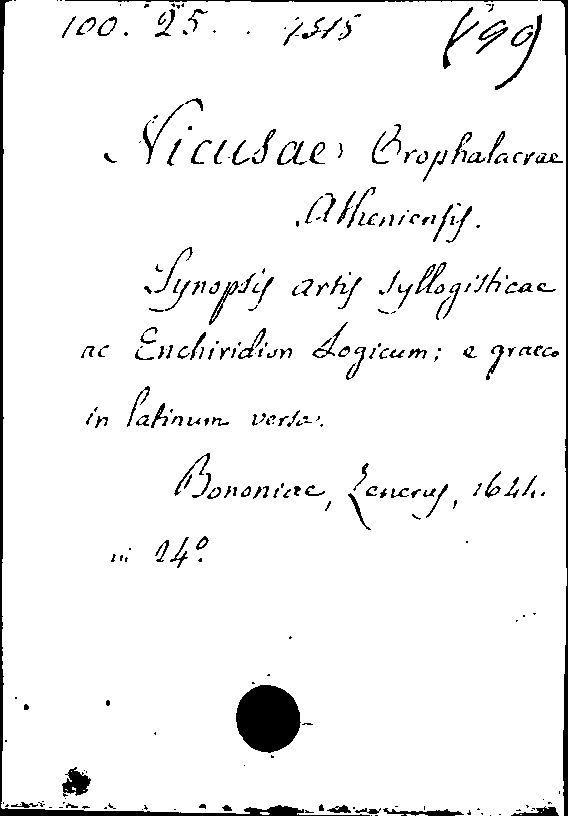 100. 25. . 1515 (99)
Nicusae, Erophalacrae
Atheniensis.
Synopsis artis syllogisticae
ac Enchiridion Logicum; e graeco
in latinum versa.
Bononiae, Zenerus, 1644.
in 24º.